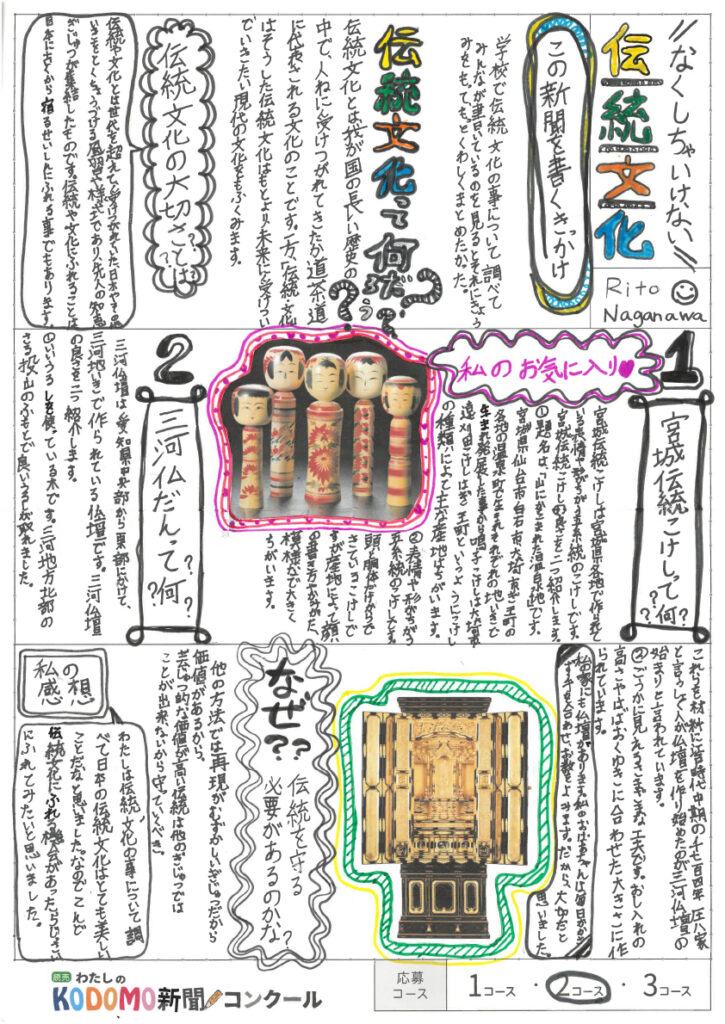 なくしちゃいけない
伝統文化
Rito
Naganawa
この新聞を書くきっかけ
学校で伝統文化の事について調べて
みんなが書いているのを見るとそれにきょう
みをもっても。とくわしくまとめたかった。
伝統文化って何だろう??
伝統文化とは我が国の長い歴史の
中で、人々に受けつがれてきたか道茶道
に代表される文化のことです。一方、伝統文化
はそうした伝統文化はもとより未来に受けつい
でいきたい現代の文化をもふくみます。
伝統文化の大切さとは??
伝統や文化とは世代を超えて受けつがれた
日本に古くから宿るせいしんにふれる事でもあります。
1
宮城伝統こけしって何??
私のお気に入り
宮城伝統こけしは宮城県各地で作られて
いる表情や形がちがう五系統のこけしです。
宮城伝統こけしの良さを二つ紹介します。
①題名は、「山にかこまれた温泉地」です。
②表情や形がちがう
五系統のこけしです。
頭と胴体だけからで
きているこけしで
すが産地によって顔
の書き方やかみがた、
模様などで大きく
ちがいます。
2
三河仏だんって何??
三河仏壇は、愛知県中央部から東部にかけて、
三河地いきで作られている仏壇です。三河仏壇
の良さを二つ紹介します。
①いいうるしを使っている木です。三河地方北部の
さる投山のふもとで良いうるしが取れました。
これらを材料に江戸時代中期の千七百四年、庄八家
と言うしょく人が仏壇を作り始めたのが三河仏壇の
始まりと言われています。
②ごうかに見えるさまざまな工夫です。おし入れの
高さやはばおくゆきに合わせた大きさに作
られています。
私の家にも仏壇があります。私のおばあちゃんは毎日かかさ
ず手を合わせ、お教をよみます。だから、大切だと
思いました。
なぜ??
伝統を守る
必要があるのかな?
他の方法では再現がむずかしいぎじゅつだから
価値があるから。
美じゅつ的な価値が高い伝統は他のぎじゅつでは
ことが出来ないから守っていくべき。
私の感想
わたしは伝統、文化の事について調
べて日本の伝統文化はとても美しい
ことだなと思いました。なのでこんど
伝統文化にふれる機会があったらじっさい
にふれてみたいと思いました。
読売 わたしの
KODOMO新聞コンクール
応募
コース
1コース ・ 2コース ・ 3コース